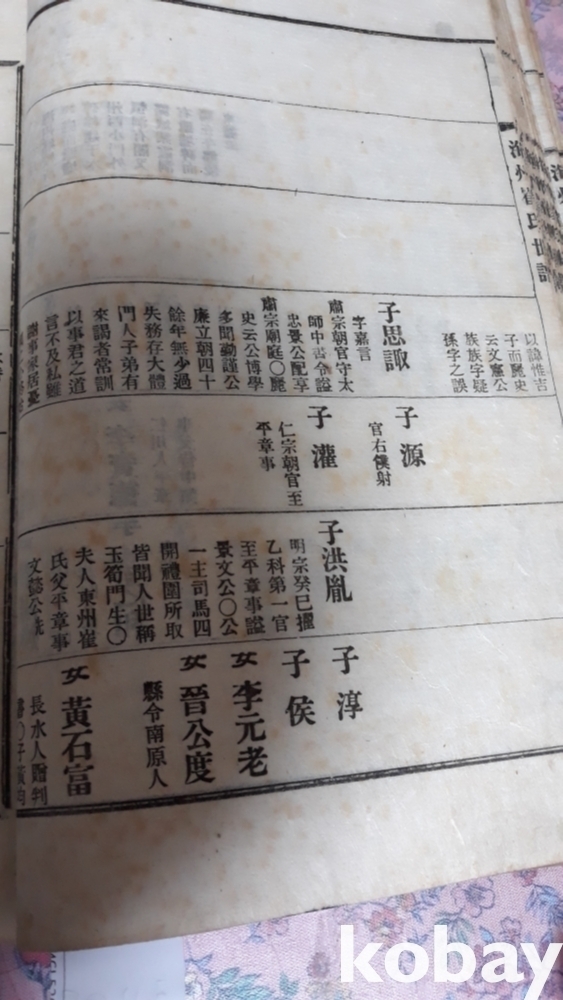 海州崔氏世譜
以諱惟吉
子而麗史
云文憲公
族族字疑
孫字之誤
子思諏
字嘉言
肅宗朝官守太
師中書令謚
忠景公配享
肅宗廟庭〇麗
史云公博學
多聞勤謹公
廉立朝四十
餘年無少過
失務存大體
門人子弟有
來謁者常訓
以事君之道
言不及私雖
子源
官右僕射
子灌
仁宗朝官至
平章事
子洪胤
明宗癸巳擢
乙科第一官
至平章事謚
景文公〇公
一主司馬四
開禮圍所取
皆聞人世稱
玉筍門生〇
夫人東州崔
氏父平章事
文懿公詵
子淳
子侯
女李元老
女晉公度
縣令南原人
女黃石富
長水人贈判
kobay